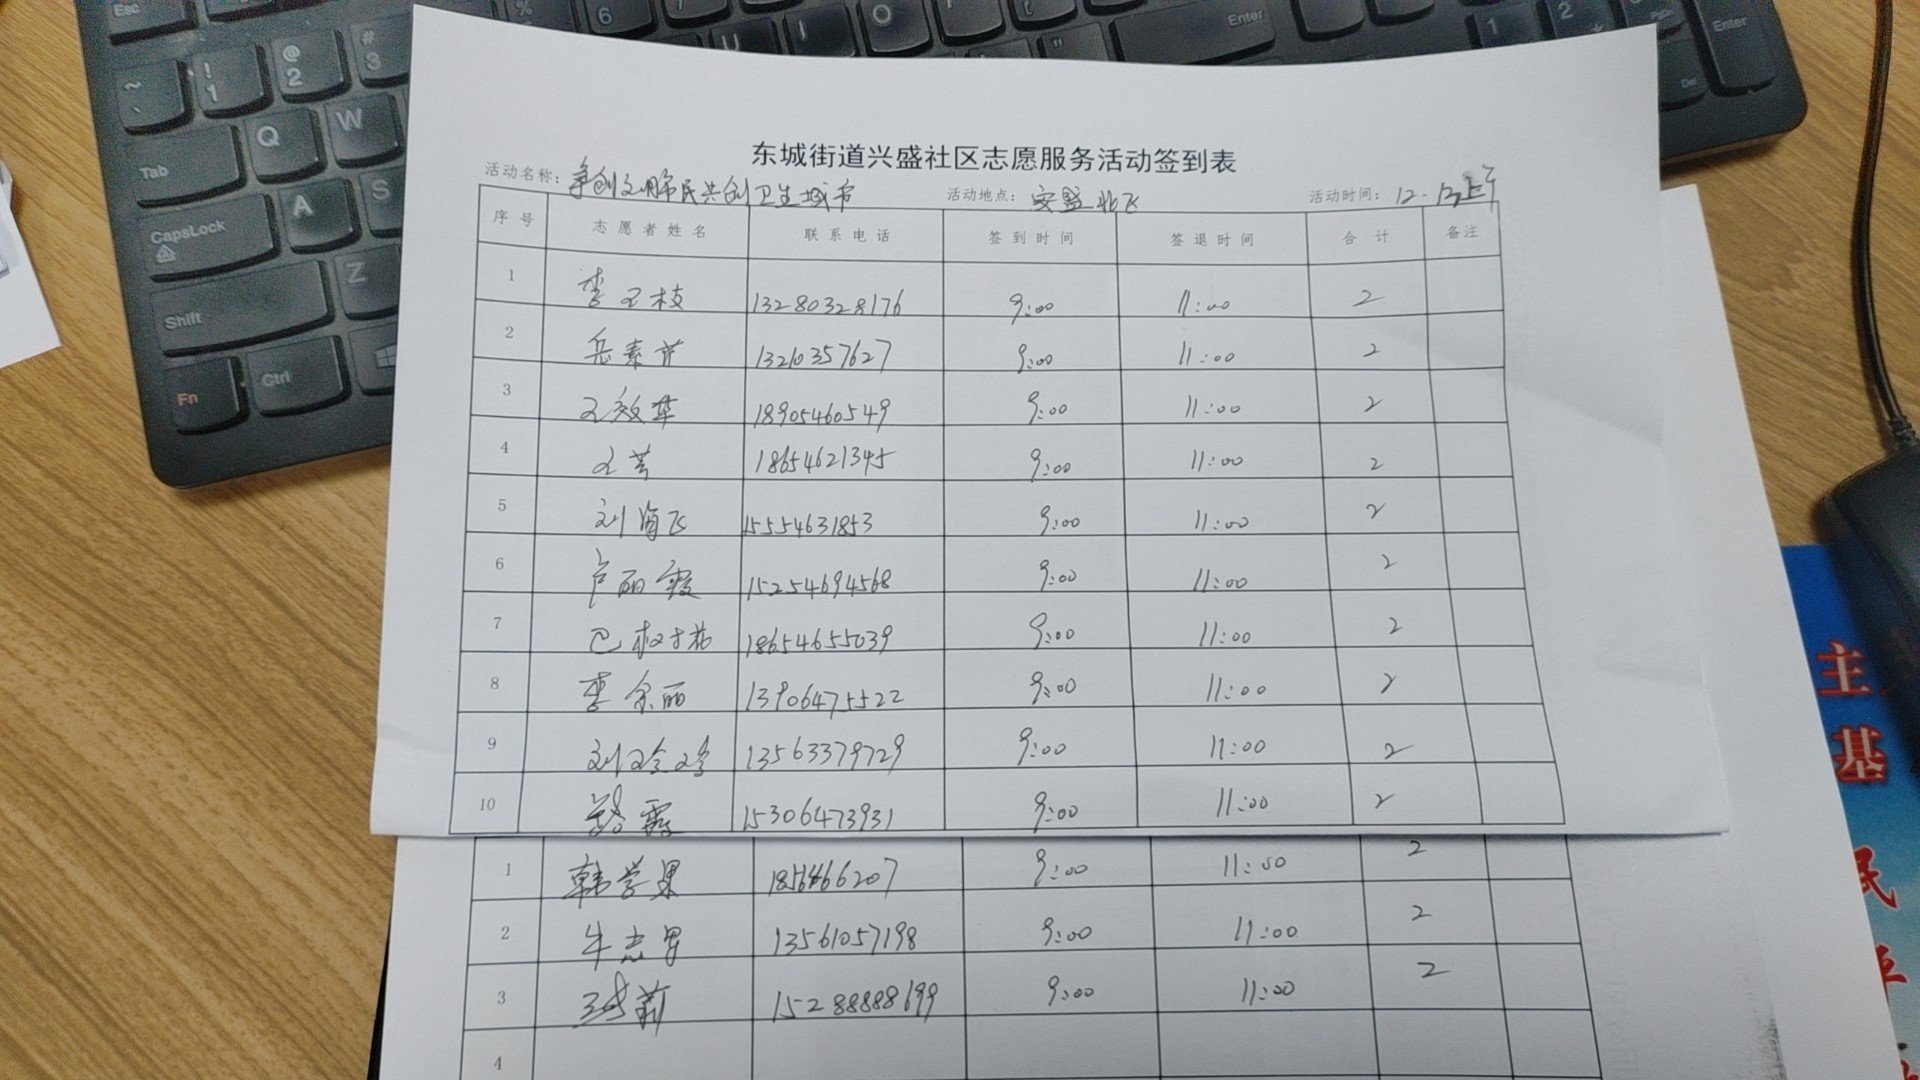 东城街道兴盛社区志愿服务活动签到表
活动名称：争创文明市民共创卫生城市 活动地点：安盛北区 活动时间：12.13上午
序号 志愿者姓名 联系电话 签到时间 签退时间 合计 备注
1 李玉枝 13280328176 9:00 11:00 2
2 岳素芹 13210357627 9:00 11:00 2
3 王效华 18905460549 9:00 11:00 2
4 王芳 18654621345 9:00 11:00 2
5 刘海飞 15554631853 9:00 11:00 2
6 卢丽霞 15254694568 9:00 11:00 2
7 巴树花 18654655039 9:00 11:00 2
8 李金丽 13906475522 9:00 11:00 2
9 刘玲玲 13563379729 9:00 11:00 2
10 15306473931 9:00 11:00 2
1 韩学果 9:00 11:00 2
2 牛志男 13561057198 9:00 11:00 2
3 15288888699 9:00 11:00 2
4
Esc
Tab
CapsLock
Shift
Fn Ctrl
Q W
A S
Z
Enter
Enter
主
基
民
平